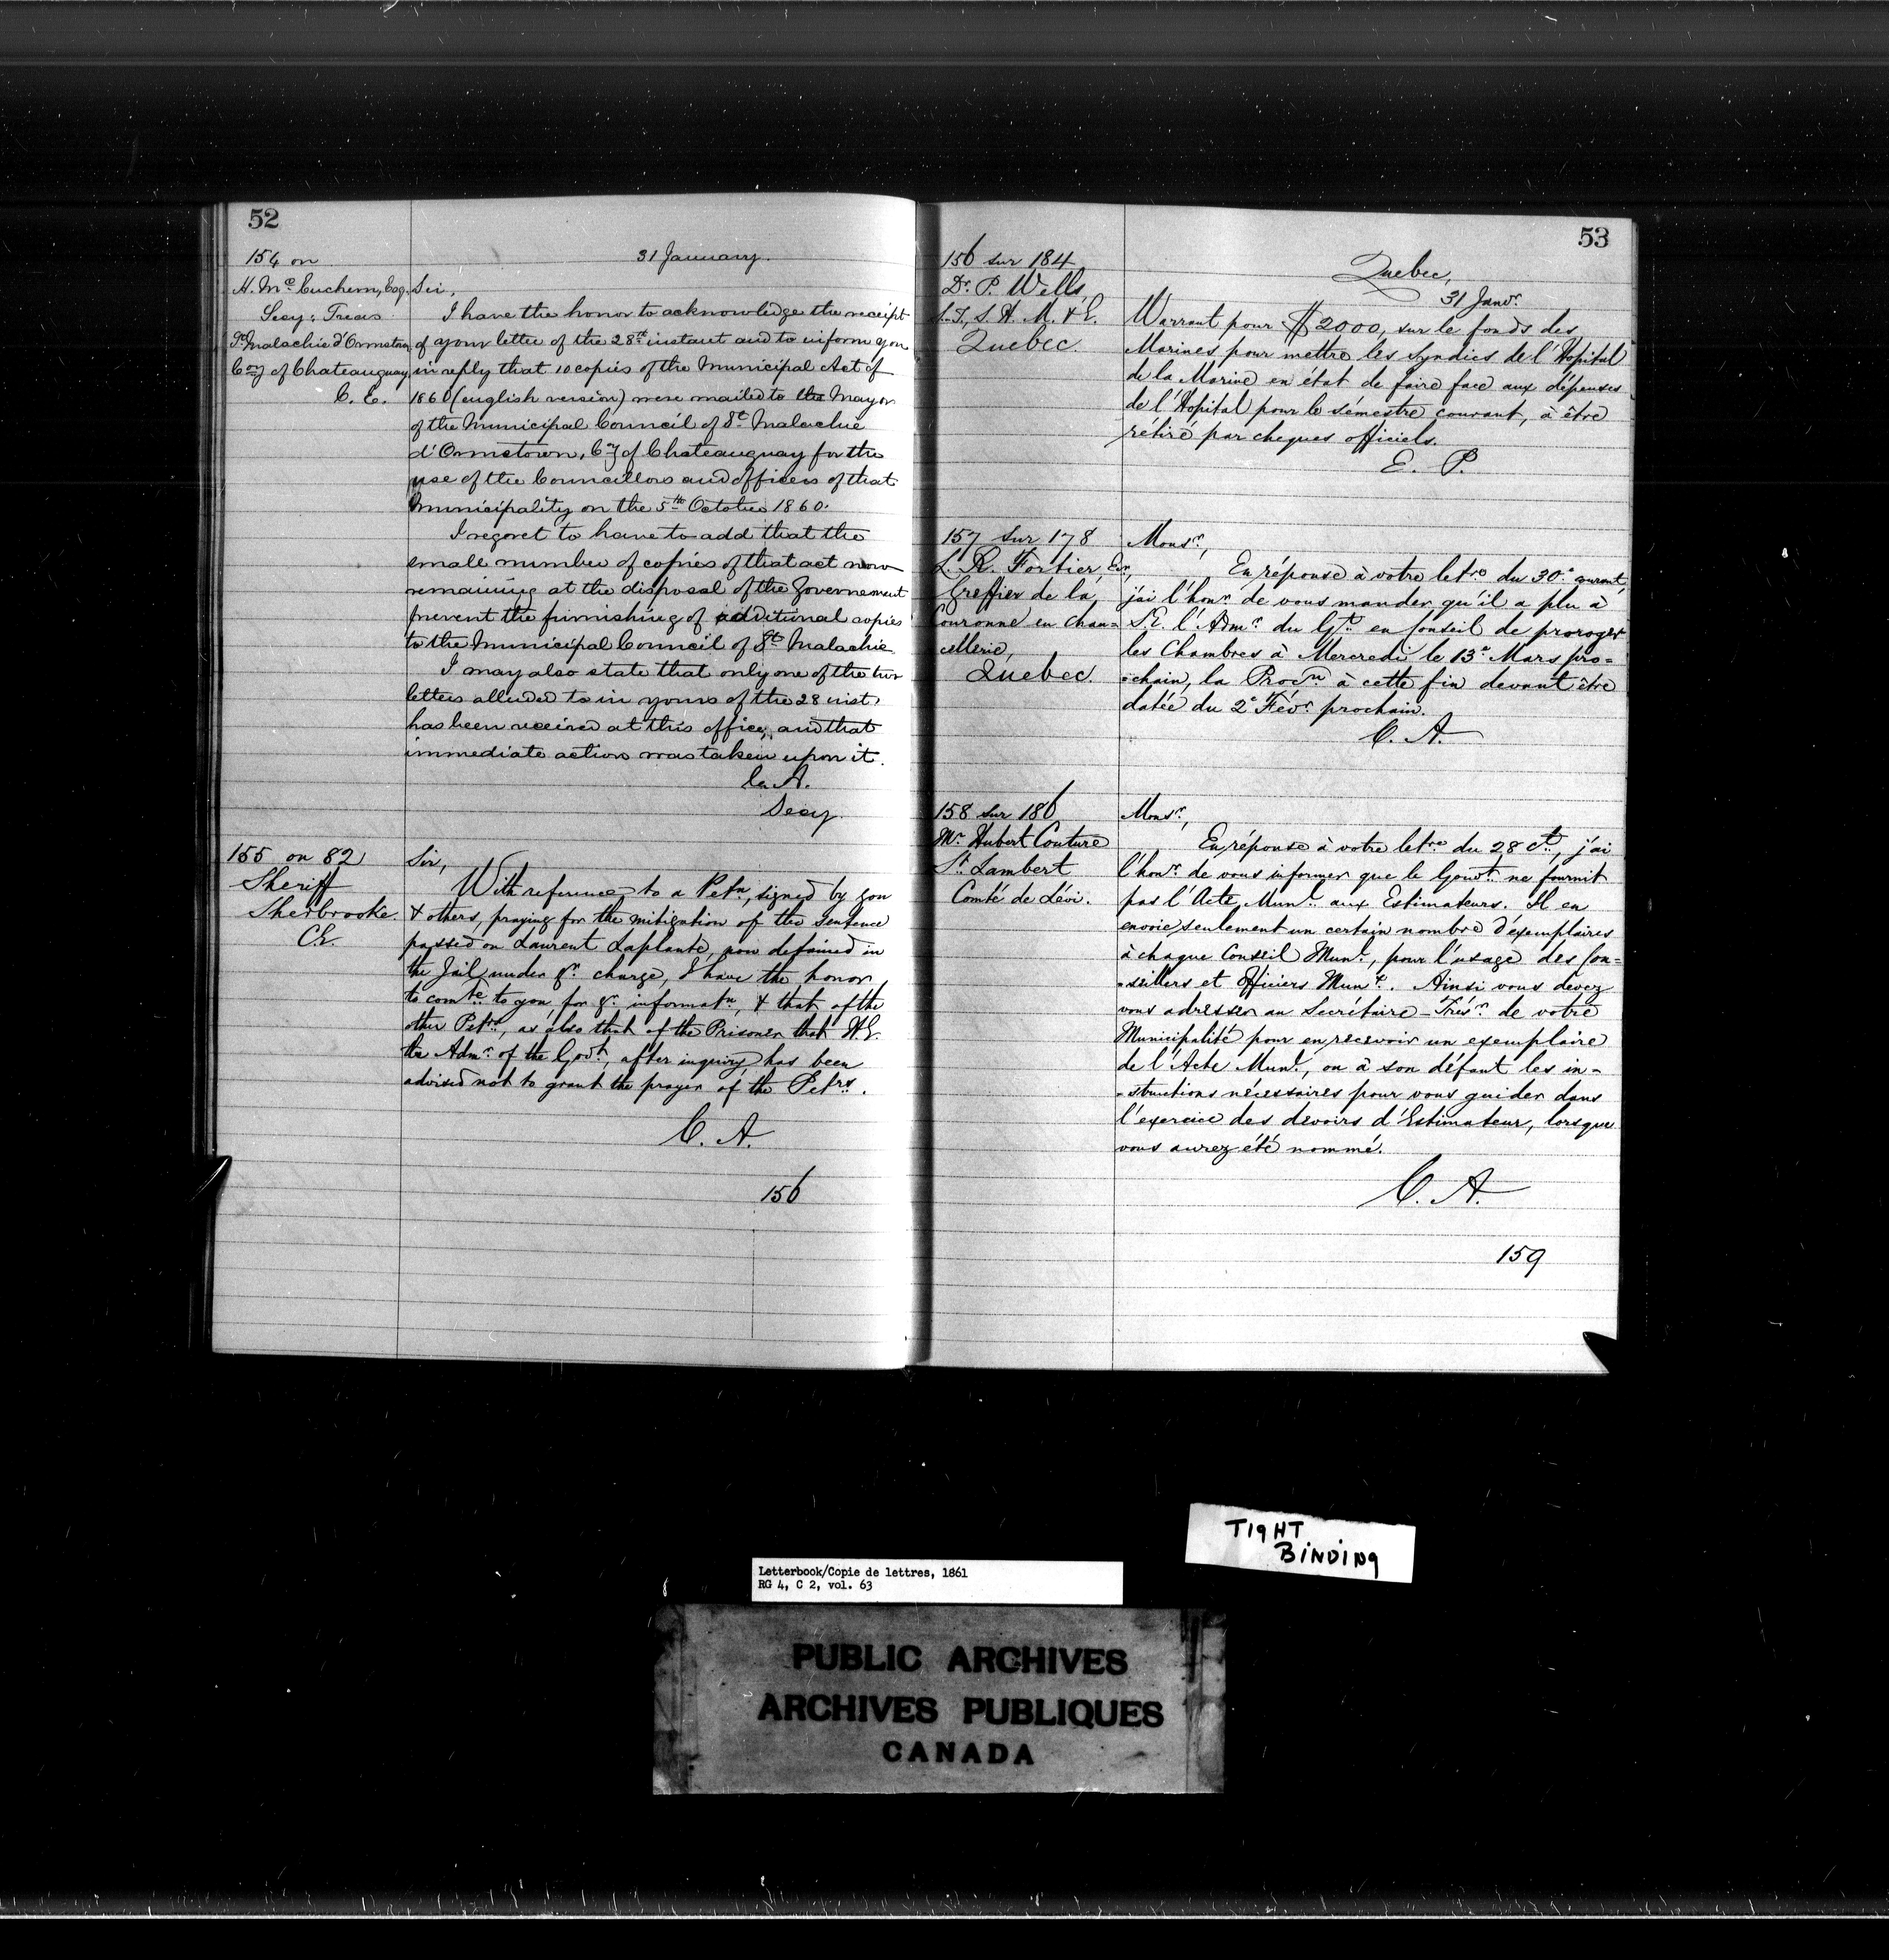 52
154 on
H. Mc Euchern, Esq.
Secy. Treas.
St Malachie d'Ormstown
Coy of Chateauguay
C. E.
31 January.
Sir,
I have the honor to acknowledge the receipt
of your letter of the 28th instant and to inform you
in reply that 10 copies of the Municipal Act of
1860 (english version) were mailed to the Mayor
of the Municipal Council of St Malachie
d'Ormstown, Coy of Chateauguay for the
use of the Councillors and officers of that
Municipality on the 5th October 1860.
I regret to have to add that the
small number of copies of that act now
remaining at the disposal of the Government
prevent the furnishing of additional copies
to the Municipal Council of St Malachie
I may also state that only one of the two
letters alluded to in yours of the 28 inst.
has been received at this office, and that
immediate action was taken upon it.
C. A.
Secy.
155 on 82
Sheriff
Sherbrooke.
C.E.
Sir,
With reference to a Petn, signed by you
& others, praying for the mitigation of the sentence
passed on Laurent Laplante, now detained in
the Jail under yr. charge, I have the honor
to comte to you, for yr. informatn, & that of the
other Petrs, as also that of the Prisoner that H.E.
the Admr. of the Govt., after inquiry, has been
advised not to grant the prayer of the Petrs.
C. A.
156
53
156 sur 184
Dr. P. Wells,
S.T., S. H. M. & E.
Quebec.
Quebec,
31 Janvr.
Warrant pour $2000, sur le fonds des
Marines pour mettre les Syndics de l'Hopital
de la Marine en état de faire face aux dépenses
de l'Hopital pour le sémestre courant, à être
rétiré par cheques officiels.
E. P.
157 sur 178
L. R. Fortier, Ecr,
Greffier de la
Couronne en Chan=
cellerie,
Quebec.
Monsr,
En réponse à votre letre du 30e. courant,
j'ai l'honr. de vous mander qu'il a plu à
S.E. l'Admr. du Gt. en Conseil de proroger
les Chambres à Mercredi le 13e Mars pro=
=chain, la Procn à cette fin devant être
datée du 2e Févr. prochain.
C. A.
158 sur 186
Mr. Hubert Couture
St. Lambert
Comté de Lévi.
Monsr,
En réponse à votre letre du 28 Ct., j'ai
l'honr. de vous informer que le Gouvt. ne fournit
pas l'Acte Munl. aux Estimateurs. Il en
envoie seulement un certain nombre d'éxemplaires
à chaque Conseil Munl., pour l'usage des Con=
=seillers et Officiers Munx. Ainsi vous devez
vous adresser au Secrétaire-Trésr. de votre
Municipalité pour en recevoir un exemplaire
de l'Acte Munl., ou à son défaut les in-
-structions nécessaires pour vous guider dans
l'exercice des devoirs d'Estimateur, lorsque
vous aurez été nommé.
C. A.
159
TIGHT
BINDING
Letterbook/Copie de lettres, 1861
RG 4, C 2, vol. 63
PUBLIC ARCHIVES
ARCHIVES PUBLIQUES
CANADA